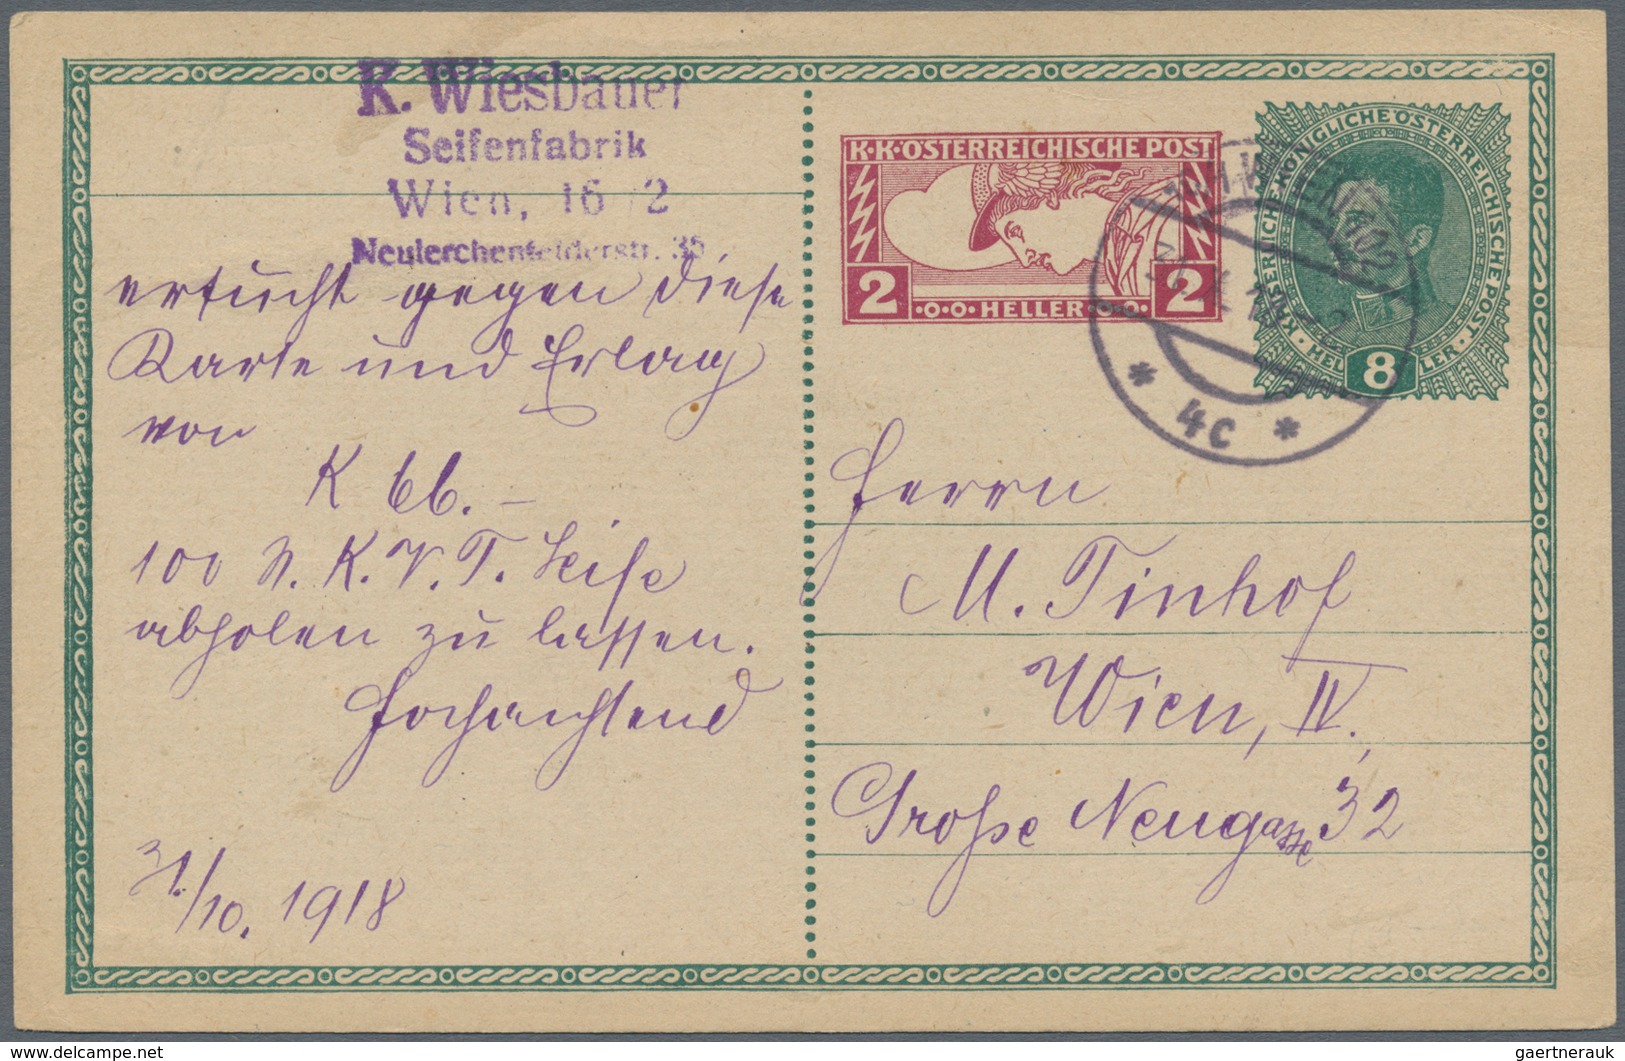 K. Wiesbauer
Seifenfabrik
Wien, 16/2
Neulerchenfelderstr. 35
ersucht gegen diese
Karte und Erlag
von
K 66.-
100 St. K.V.T. Seife
abholen zu lassen.
Hochachtend
31./10. 1918
K·K·ÖSTERREICHISCHE POST
2 ·O·O·HELLER·O·O· 2
KAISERLICH·KÖNIGLICHE ÖSTERREICHISCHE POST
8
HELLER
WIEN
* 4c *
Herrn
M. Tinhof
Wien, IV.,
Große Neugasse 32
gaertnerauk